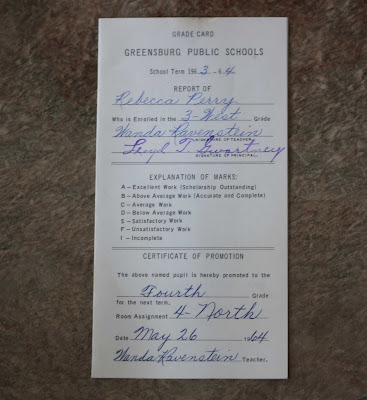 GRADE CARD
GREENSBURG PUBLIC SCHOOLS
School Term 196 3 - 6 4
REPORT OF
Rebecca Perry
Who is Enrolled in the 3-West Grade
Wanda Ravenstein
SIGNATURE OF TEACHER
Lloyd T. Gwartney
SIGNATURE OF PRINCIPAL
EXPLANATION OF MARKS:
A—Excellent Work (Scholarship Outstanding)
B—Above Average Work (Accurate and Complete)
C—Average Work
D—Below Average Work
S—Satisfactory Work
F—Unsatisfactory Work
I—Incomplete
CERTIFICATE OF PROMOTION
The above named pupil is hereby promoted to the
Fourth Grade
for the next term.
Room Assignment 4-North
Date May 26 1964
Wanda Ravenstein Teacher.